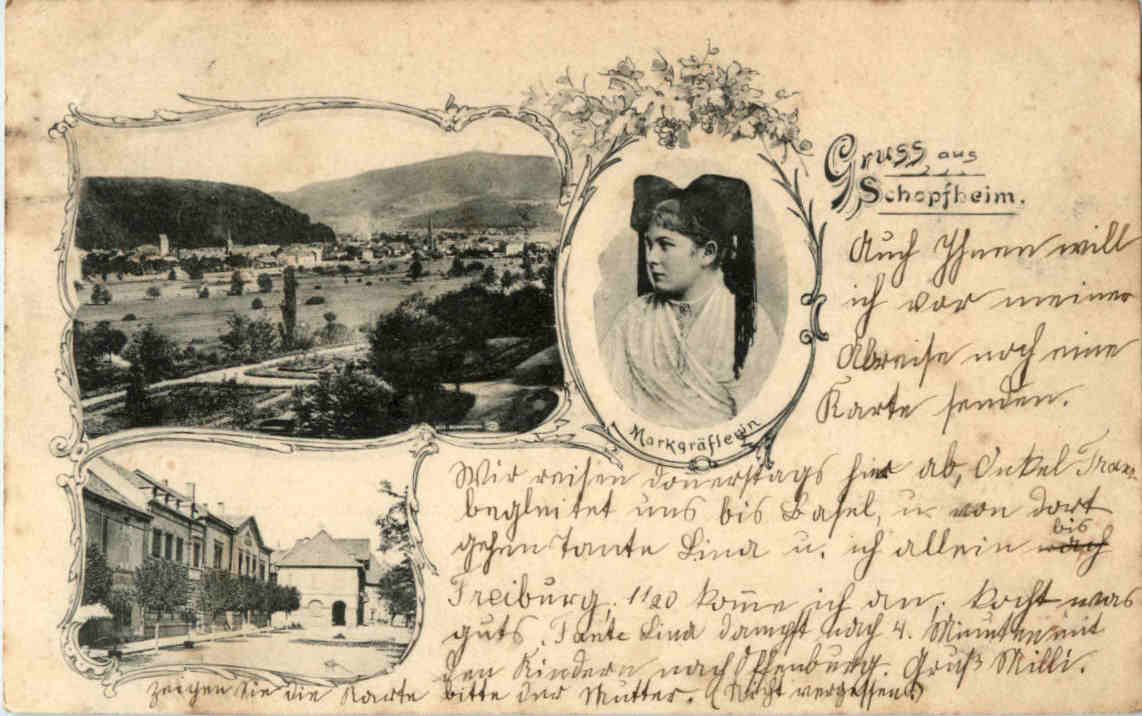 Gruss aus
Schopfheim.
Markgräflerin
Auch Ihnen will
ich vor meiner
Abreise noch eine
Karte senden.
Wir reisen donerstags hier ab, Onkel Franz
begleitet uns bis Basel, u. von dort
gehen Tante Lina u. ich allein bis
Freiburg. 11 20 kom̄e ich an, kocht was
guts. Tante Lina dampft nach 4. Minuten mit
den Kindern nach Offenburg. Gruß Milli.
Zeigen Sie die Karte bitte der Mutter. (Nicht vergessen!)